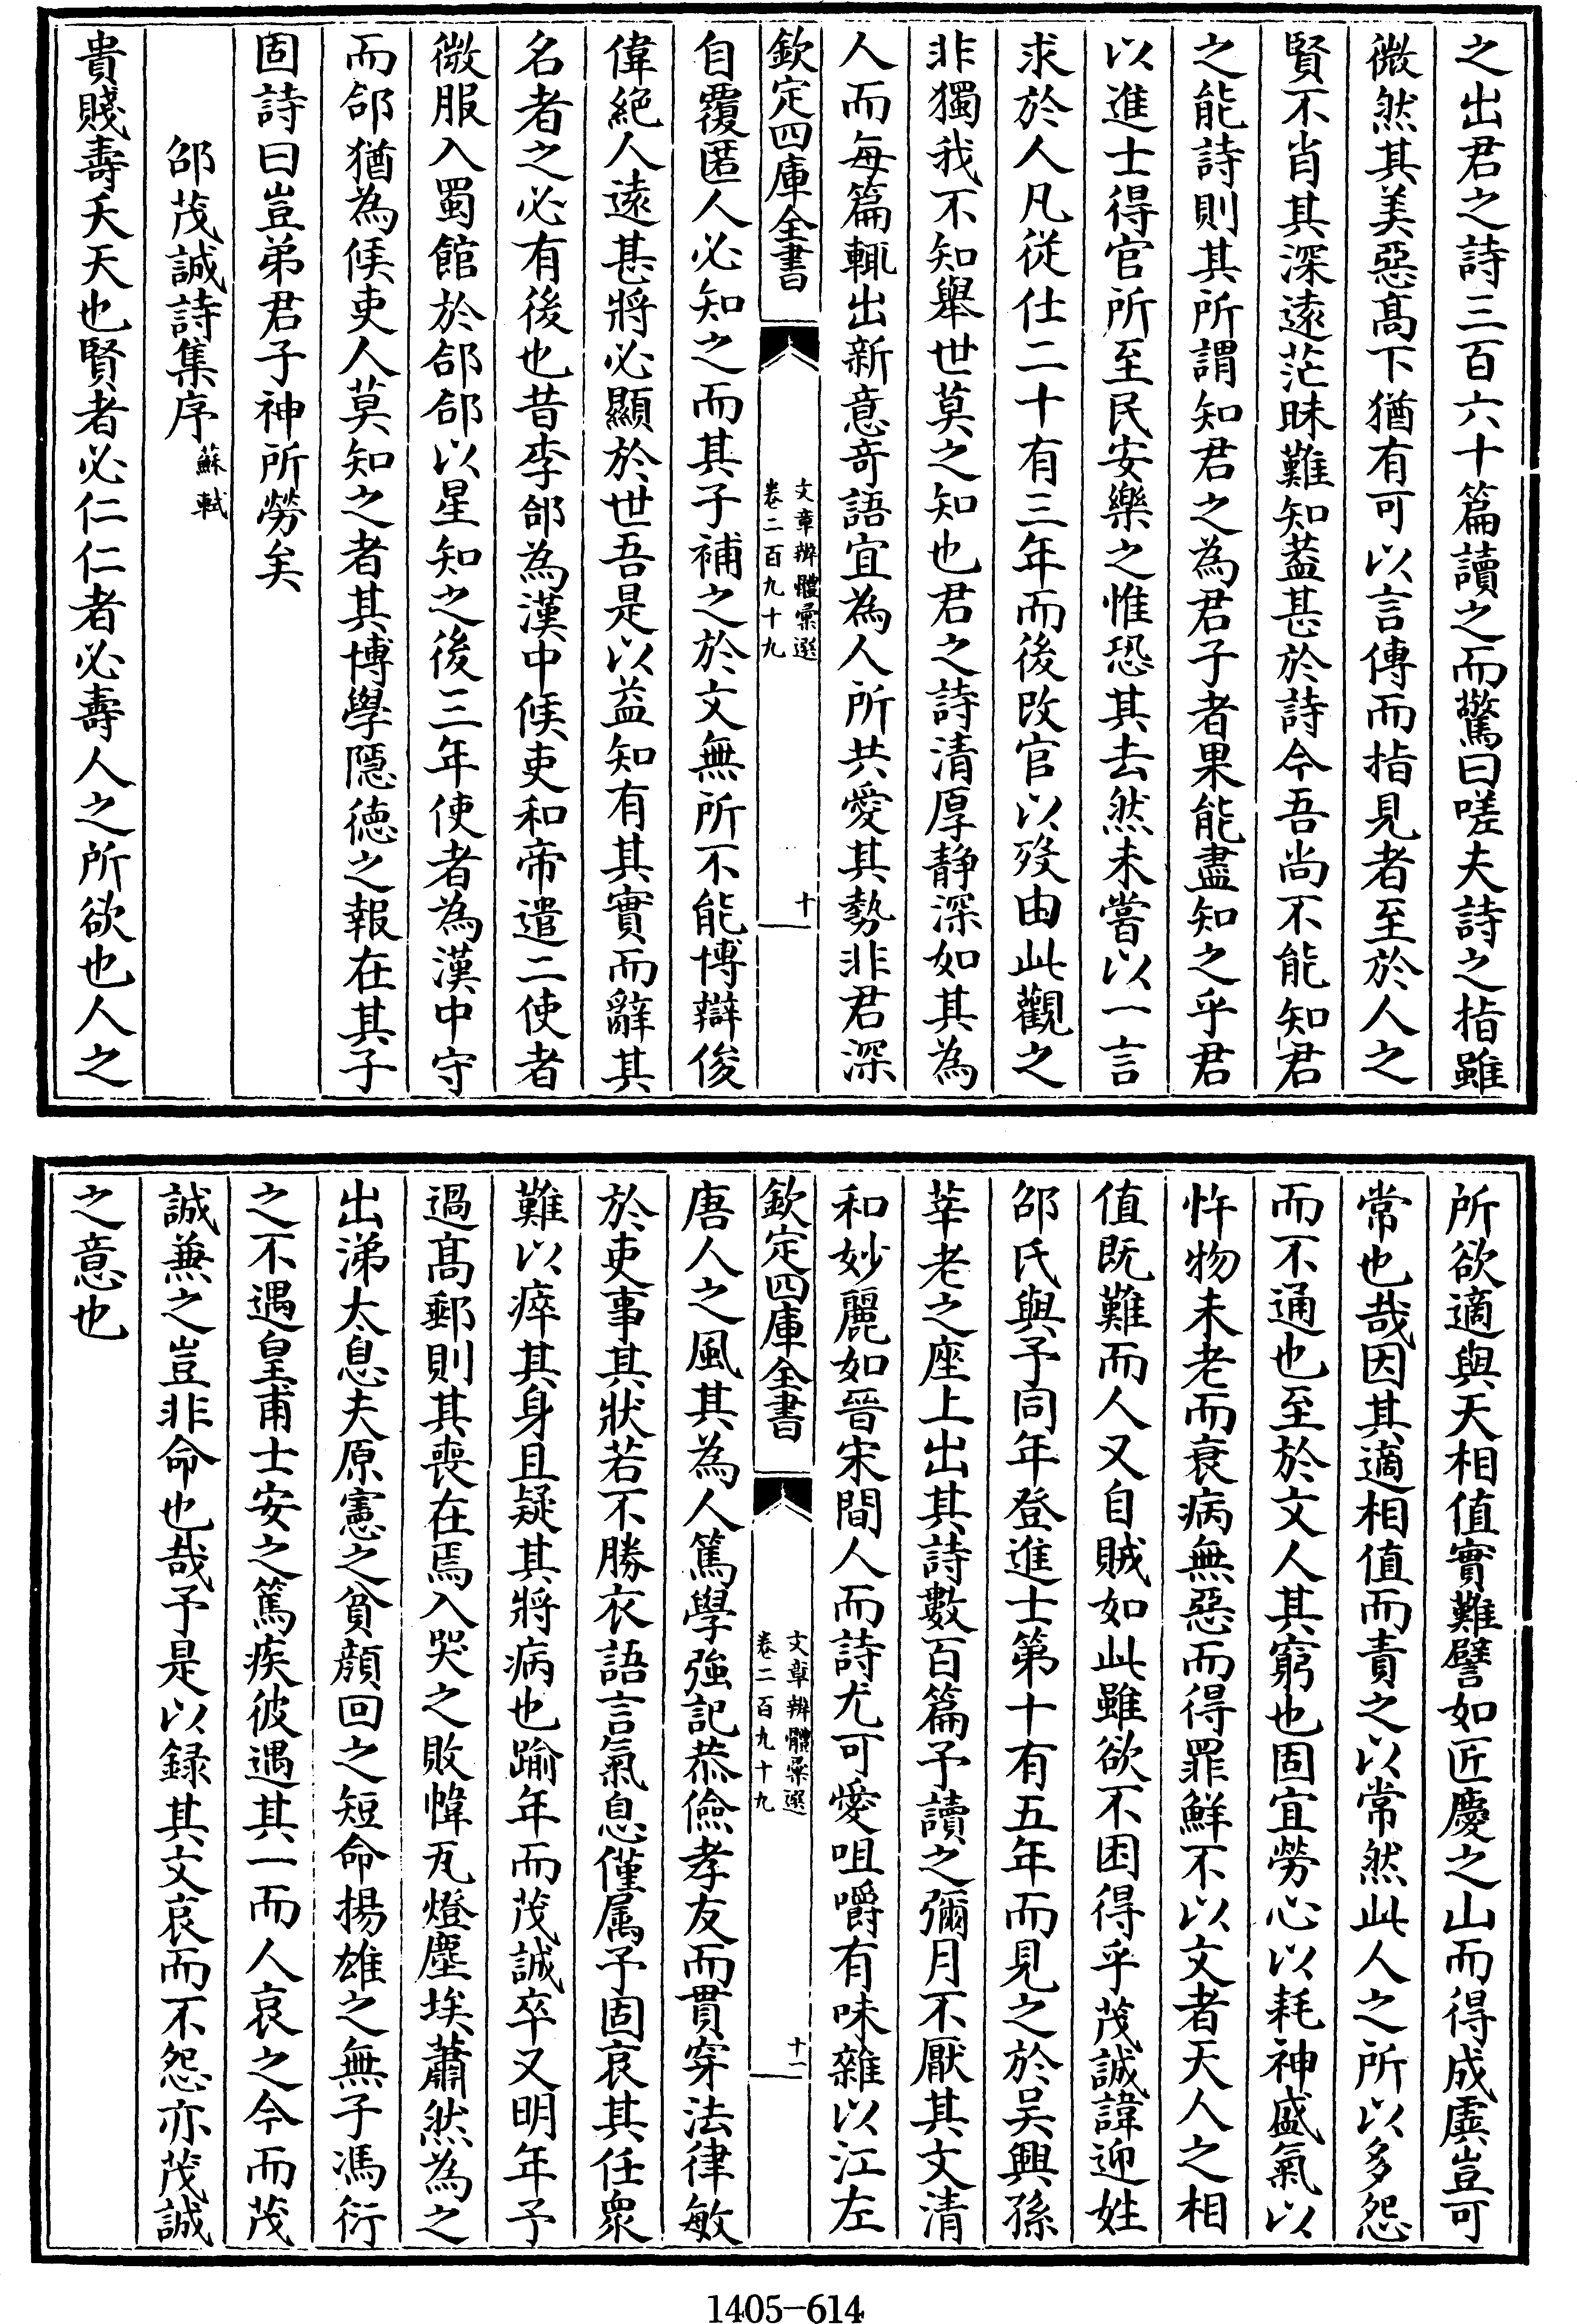 之出君之詩三百六十篇讀之而驚曰嗟夫詩之指雖
微然其美惡髙下猶有可以言傳而指見者至於人之
賢不肖其深遠茫昧難知葢甚於詩今吾尚不能知君
之能詩則其所謂知君之為君子者果能盡知之乎君
以進士得官所至民安樂之惟恐其去然未嘗以一言
求於人凡從仕二十有三年而後改官以歿由此觀之
非獨我不知舉世莫之知也君之詩清厚静深如其為
人而每篇輒出新意竒語宜為人所共愛其勢非君深
欽定四庫全書
文章辨體彙選
卷二百九十九
十
自覆匿人必知之而其子補之於文無所不能博辯俊
偉絶人逺甚將必顯於世吾是以益知有其實而辭其
名者之必有後也昔李郃為漢中候吏和帝遣二使者
微服入蜀館於郃郃以星知之後三年使者為漢中守
而郃猶為候吏人莫知之者其博學隠徳之報在其子
固詩曰豈弟君子神所勞矣
邵茂誠詩集序蘇軾
貴賤壽夭天也賢者必仁仁者必壽人之所欲也人之
所欲適與天相值實難譬如匠慶之山而得成虡豈可
常也哉因其適相值而責之以常然此人之所以多怨
而不通也至於文人其窮也固宜勞心以耗神盛氣以
忤物未老而衰病無惡而得罪鮮不以文者天人之相
值既難而人又自賊如此雖欲不困得乎茂誠諱迎姓
邵氏與予同年登進士第十有五年而見之於吴興孫
莘老之座上出其詩數百篇予讀之彌月不厭其文清
和妙麗如晉宋間人而詩尤可愛咀嚼有味雜以江左
欽定四庫全書
文章辨體彙選
卷二百九十九
十一
唐人之風其為人篤學強記恭儉孝友而貫穿法律敏
於吏事其狀若不勝衣語言氣息僅属予固哀其任衆
難以瘁其身且疑其將病也踰年而茂誠卒又明年予
過髙郵則其喪在焉入哭之敗幃瓦燈塵埃蕭然為之
出涕太息夫原憲之貧顔回之短命揚雄之無子馮衍
之不遇皇甫士安之篤疾彼遇其一而人哀之今而茂
誠兼之豈非命也哉予是以録其文哀而不怨亦茂誠
之意也
1405-614